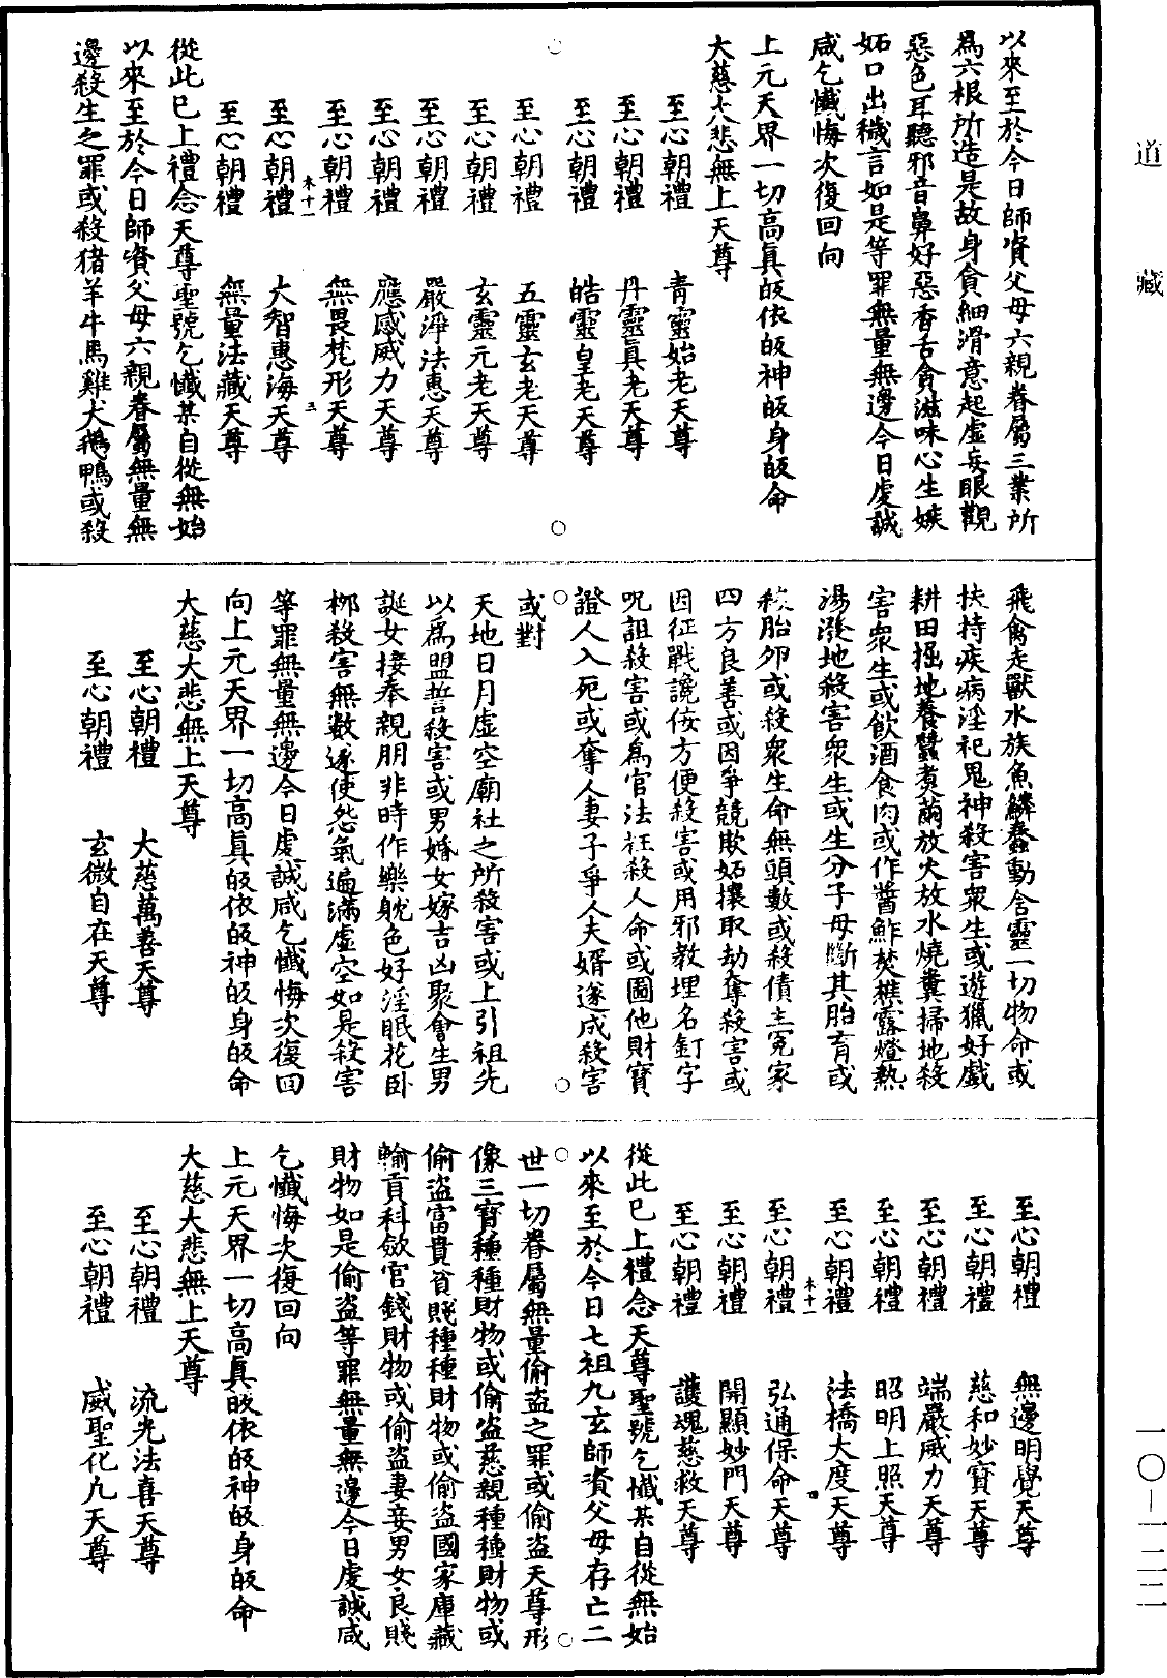 道藏
以來至於今日師資父母六親眷屬三業所
爲六根所造是故身貪細滑意起虛妄眼觀
惡色耳聽邪音鼻好惡香舌貪滋味心生嫉
妬口出穢言如是等罪無量無邊今日虔誠
咸乞懺悔次復回向
上元天界一切高眞皈依皈神皈身皈命
大慈大悲無上天尊
至心朝禮　青靈始老天尊
至心朝禮　丹靈眞老天尊
至心朝禮　皓靈皇老天尊
至心朝禮　五靈玄老天尊
至心朝禮　玄靈元老天尊
至心朝禮　嚴淨法惠天尊
至心朝禮　應感威力天尊
至心朝禮　無畏梵形天尊
木十一　三
至心朝禮　大智惠海天尊
至心朝禮　無量法藏天尊
從此已上禮念天尊聖號乞懺某自從無始
以來至於今日師資父母六親眷屬無量無
邊殺生之罪或殺猪羊牛馬雞犬鵝鴨或殺
飛禽走獸水族魚鱗蠢動含靈一切物命或
扶持疾病淫祀鬼神殺害衆生或遊獵好戲
耕田掘地養蠶煑繭放火放水燒糞掃地殺
害衆生或飲酒食肉或作醬鮓焚樵露燈熱
湯潑地殺害衆生或生分子母斷其胎育或
殺胎卵或殺衆生命無頭數或殺債主冤家
四方良善或因爭競欺妬攘取劫奪殺害或
因征戰讒侫方便殺害或用邪教埋名釘字
呪詛殺害或爲官法枉殺人命或圖他財寶
證人入死或奪人妻子爭人夫婿遂成殺害
或對
天地日月虛空廟社之所殺害或上引祖先
以爲盟誓殺害或男婚女嫁吉凶聚會生男
誕女接奉親朋非時作樂躭色好淫眠花卧
柳殺害無數遂使怨氣遍滿虛空如是殺害
等罪無量無邊今日虔誠咸乞懺悔次復回
向上元天界一切高眞皈依皈神皈身皈命
大慈大悲無上天尊
至心朝禮　大慈萬善天尊
至心朝禮　玄微自在天尊
至心朝禮　無邊明覺天尊
至心朝禮　慈和妙寶天尊
至心朝禮　端嚴威力天尊
至心朝禮　昭明上照天尊
至心朝禮　法橋大度天尊
木十一　四
至心朝禮　弘通保命天尊
至心朝禮　開顯妙門天尊
至心朝禮　護魂慈救天尊
從此已上禮念天尊聖號乞懺某自從無始
以來至於今日七祖九玄師資父母存亡二
世一切眷屬無量偷盗之罪或偷盗天尊形
像三寶種種財物或偷盗慈親種種財物或
偷盗富貴貧賤種種財物或偷盗國家庫藏
輸貢科歛官錢財物或偷盗妻妾男女良賤
財物如是偷盗等罪無量無邊今日虔誠咸
乞懺悔次復回向
上元天界一切高眞皈依皈神皈身皈命
大慈大悲無上天尊
至心朝禮　流光法喜天尊
至心朝禮　威聖化九天尊
一〇—一二二